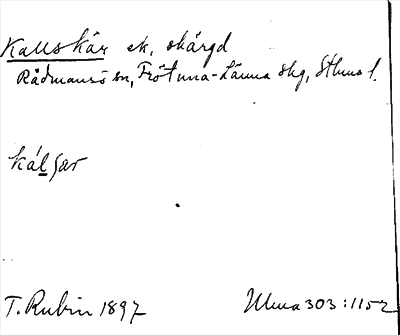 Kallskär ek, skärgd
Rådmansö sn, Frötuna-Länna skg, Sthms l.
kálsar
T. Rubin 1897
Ulma 303:1152